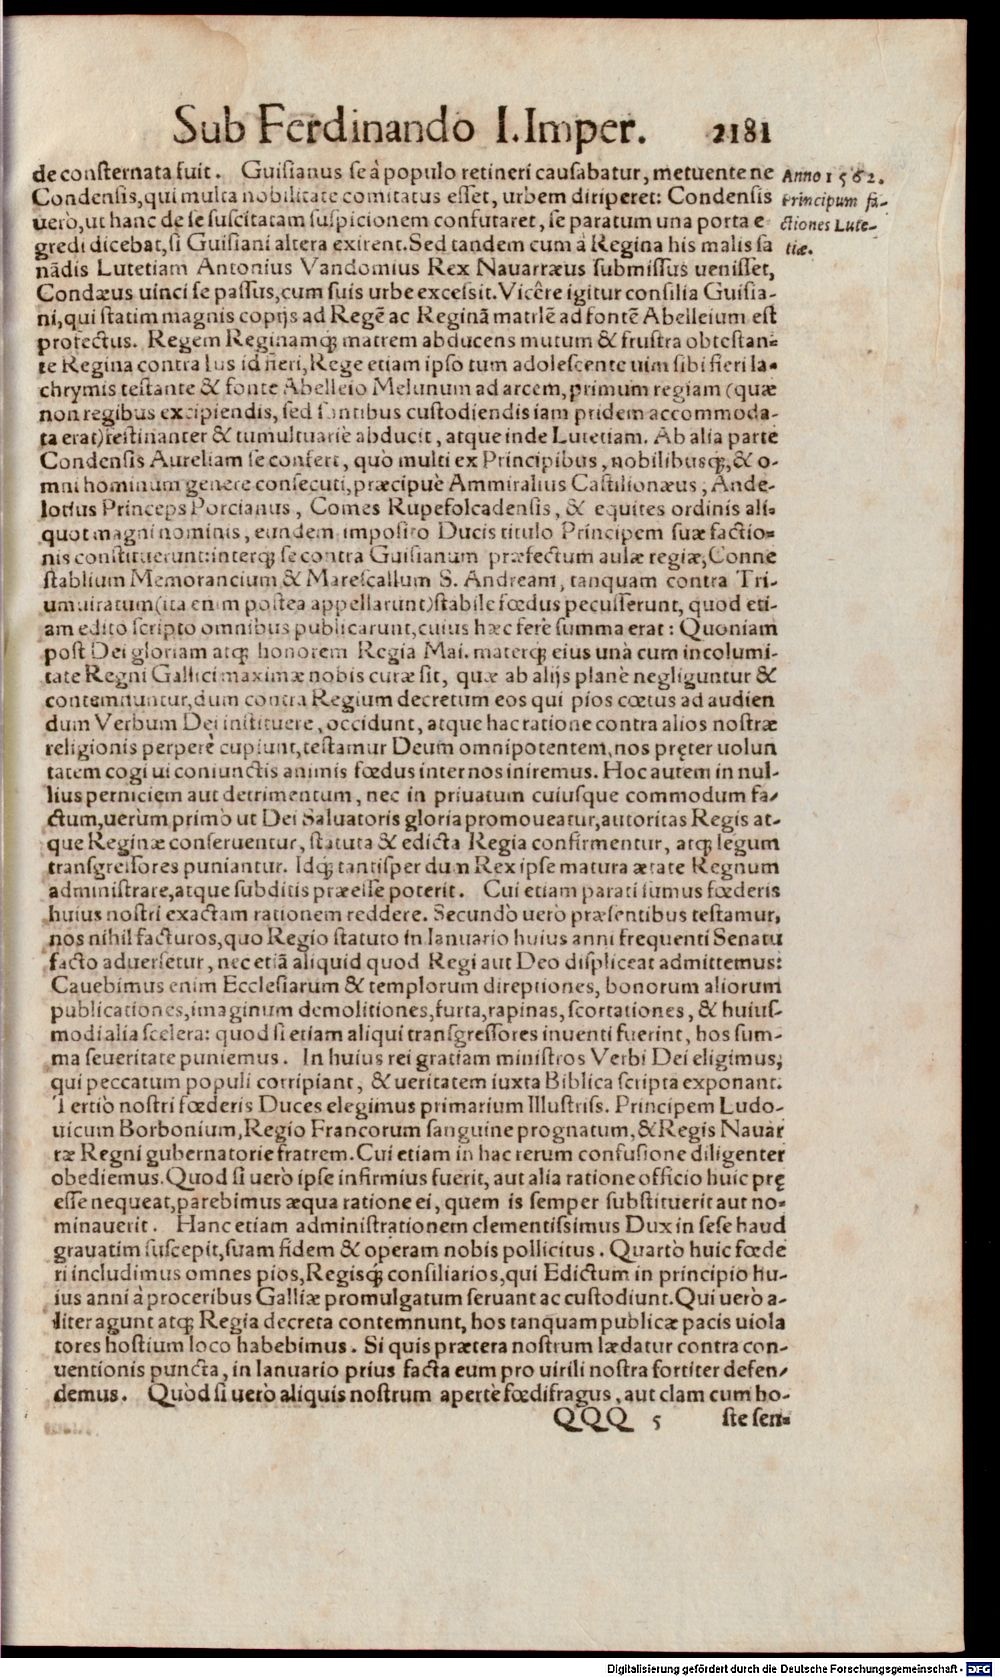 Sub Ferdinando I. Imper. 2181
de consternata fuit. Guisianus se à populo retineri causabatur, metuente ne
Condensis, qui multa nobilitate comitatus esset, urbem diriperet: Condensis
uerò, ut hanc de se suscitatam suspicionem confutaret, se paratum una porta e-
gredi dicebat, si Guisiani altera exirent. Sed tandem cum à Regina his malis sa
nãdis Lutetiam Antonius Vandomius Rex Nauarræus submissus uenisset,
Condæus uinci se passus, cum suis urbe excessit. Vicêre igitur consilia Guisia-
ni, qui statim magnis copijs ad Regẽ ac Reginã matrẽ ad fontẽ Abelleium est
profectus. Regem Reginamq́; matrem abducens mutum & frustra obtestan-
te Regina contra ius id fieri, Rege etiam ipso tum adolescente uim sibi fieri la-
chrymis testante & fonte Abelleio Melunum ad arcem, primum regiam (quæ
non regibus excipiendis, sed sontibus custodiendis iam pridem accommoda-
ta erat) festinanter & tumultuariè abducit, atque inde Lutetiam. Ab alia parte
Condensis Aureliam se confert, quò multi ex Principibus, nobilibusq́;, & o-
mni hominum genere consecuti, præcipuè Ammiralius Castilionæus, Ande-
lotius Princeps Porcianus, Comes Rupefolcadensis, & equites ordinis ali-
quot magni nominis, eundem imposito Ducis titulo Principem suæ factio-
nis constituerunt: interq́; se contra Guisianum præfectum aulæ regiæ, Conne
stablium Memorancium & Marescallum S. Andream, tanquam contra Tri-
umuiratum (ita enim postea appellarunt) stabile fœdus pecusserunt, quod eti-
am edito scripto omnibus publicarunt, cuius hæc ferè summa erat: Quoniam
post Dei gloriam atq́; honorem Regia Mai. materq́; eius unà cum incolumi-
tate Regni Gallici maximæ nobis curæ sit, quæ ab alijs planè negliguntur &
contemnuntur, dum contra Regium decretum eos qui pios cœtus ad audien
dum Verbum Dei instituere, occidunt, atque hac ratione contra alios nostræ
religionis perperè cupiunt, testamur Deum omnipotentem, nos pręter uolun
tatem cogi ui coniunctis animis fœdus inter nos iniremus. Hoc autem in nul-
lius perniciem aut detrimentum, nec in priuatum cuiusque commodum fa-
ctum, uerùm primò ut Dei Saluatoris gloria promoueatur, autoritas Regis at-
que Reginæ conseruentur, statuta & edicta Regia confirmentur, atq́; legum
transgressores puniantur. Idq́; tantisper dum Rex ipse matura ætate Regnum
administrare, atque subditis præesse poterit. Cui etiam parati sumus fœderis
huius nostri exactam rationem reddere. Secundò uerò præsentibus testamur,
nos nihil facturos, quo Regio statuto in Ianuario huius anni frequenti Senatu
facto aduersetur, nec etiã aliquid quod Regi aut Deo displiceat admittemus:
Cauebimus enim Ecclesiarum & templorum direptiones, bonorum aliorum
publicationes, imaginum demolitiones, furta, rapinas, scortationes, & huius-
modi alia scelera: quod si etiam aliqui transgressores inuenti fuerint, hos sum-
ma seueritate puniemus. In huius rei gratiam ministros Verbi Dei eligimus,
qui peccatum populi corripiant, & ueritatem iuxta Biblica scripta exponant.
Tertiò nostri fœderis Duces elegimus primarium Illustriss. Principem Ludo-
uicum Borbonium, Regio Francorum sanguine prognatum, & Regis Nauar
ræ Regni gubernatorie fratrem. Cui etiam in hac rerum confusione diligenter
obediemus. Quod si uerò ipse infirmius fuerit, aut alia ratione officio huic prę
esse nequeat, parebimus æqua ratione ei, quem is semper substituerit aut no-
minauerit. Hanc etiam administrationem clementissimus Dux in sese haud
grauatim suscepit, suam fidem & operam nobis pollicitus. Quartò huic fœde
ri includimus omnes pios, Regisq́; consiliarios, qui Edictum in principio hu-
ius anni à proceribus Galliæ promulgatum seruant ac custodiunt. Qui uerò a-
liter agunt atq́; Regia decreta contemnunt, hos tanquam publicæ pacis uiola
tores hostium loco habebimus. Si quis præterea nostrum lædatur contra con-
uentionis puncta, in Ianuario prius facta eum pro uirili nostra fortiter defen-
demus. Quòd si uerò aliquis nostrum apertè fœdifragus, aut clam cum ho-
QQQ 5 ste sen-
Anno 1562.
Principum fa-
ctiones Lute-
tiæ.
Digitalisierung gefördert durch die Deutsche Forschungsgemeinschaft - DFG